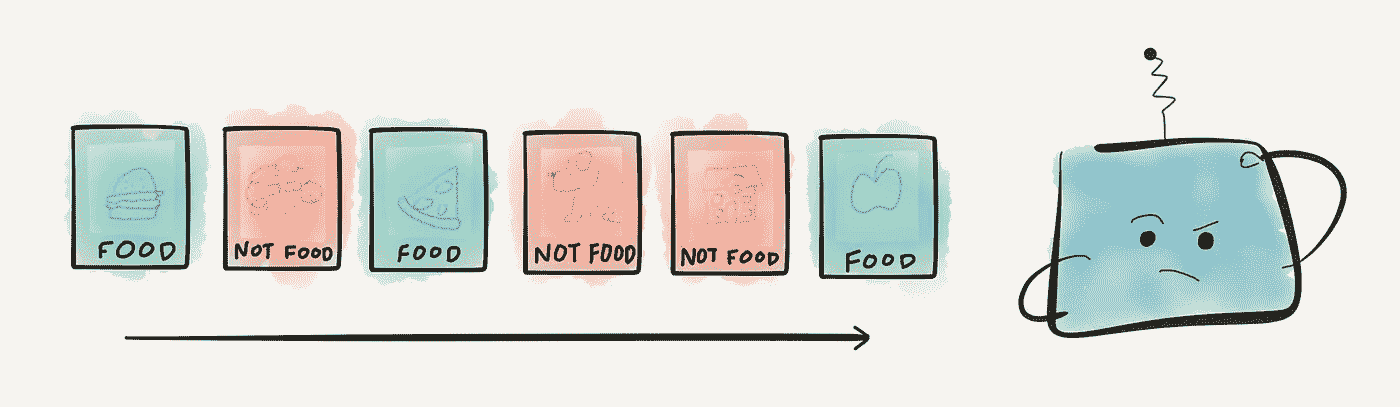 FOOD
NOT FOOD
FOOD
NOT FOOD
NOT FOOD
FOOD